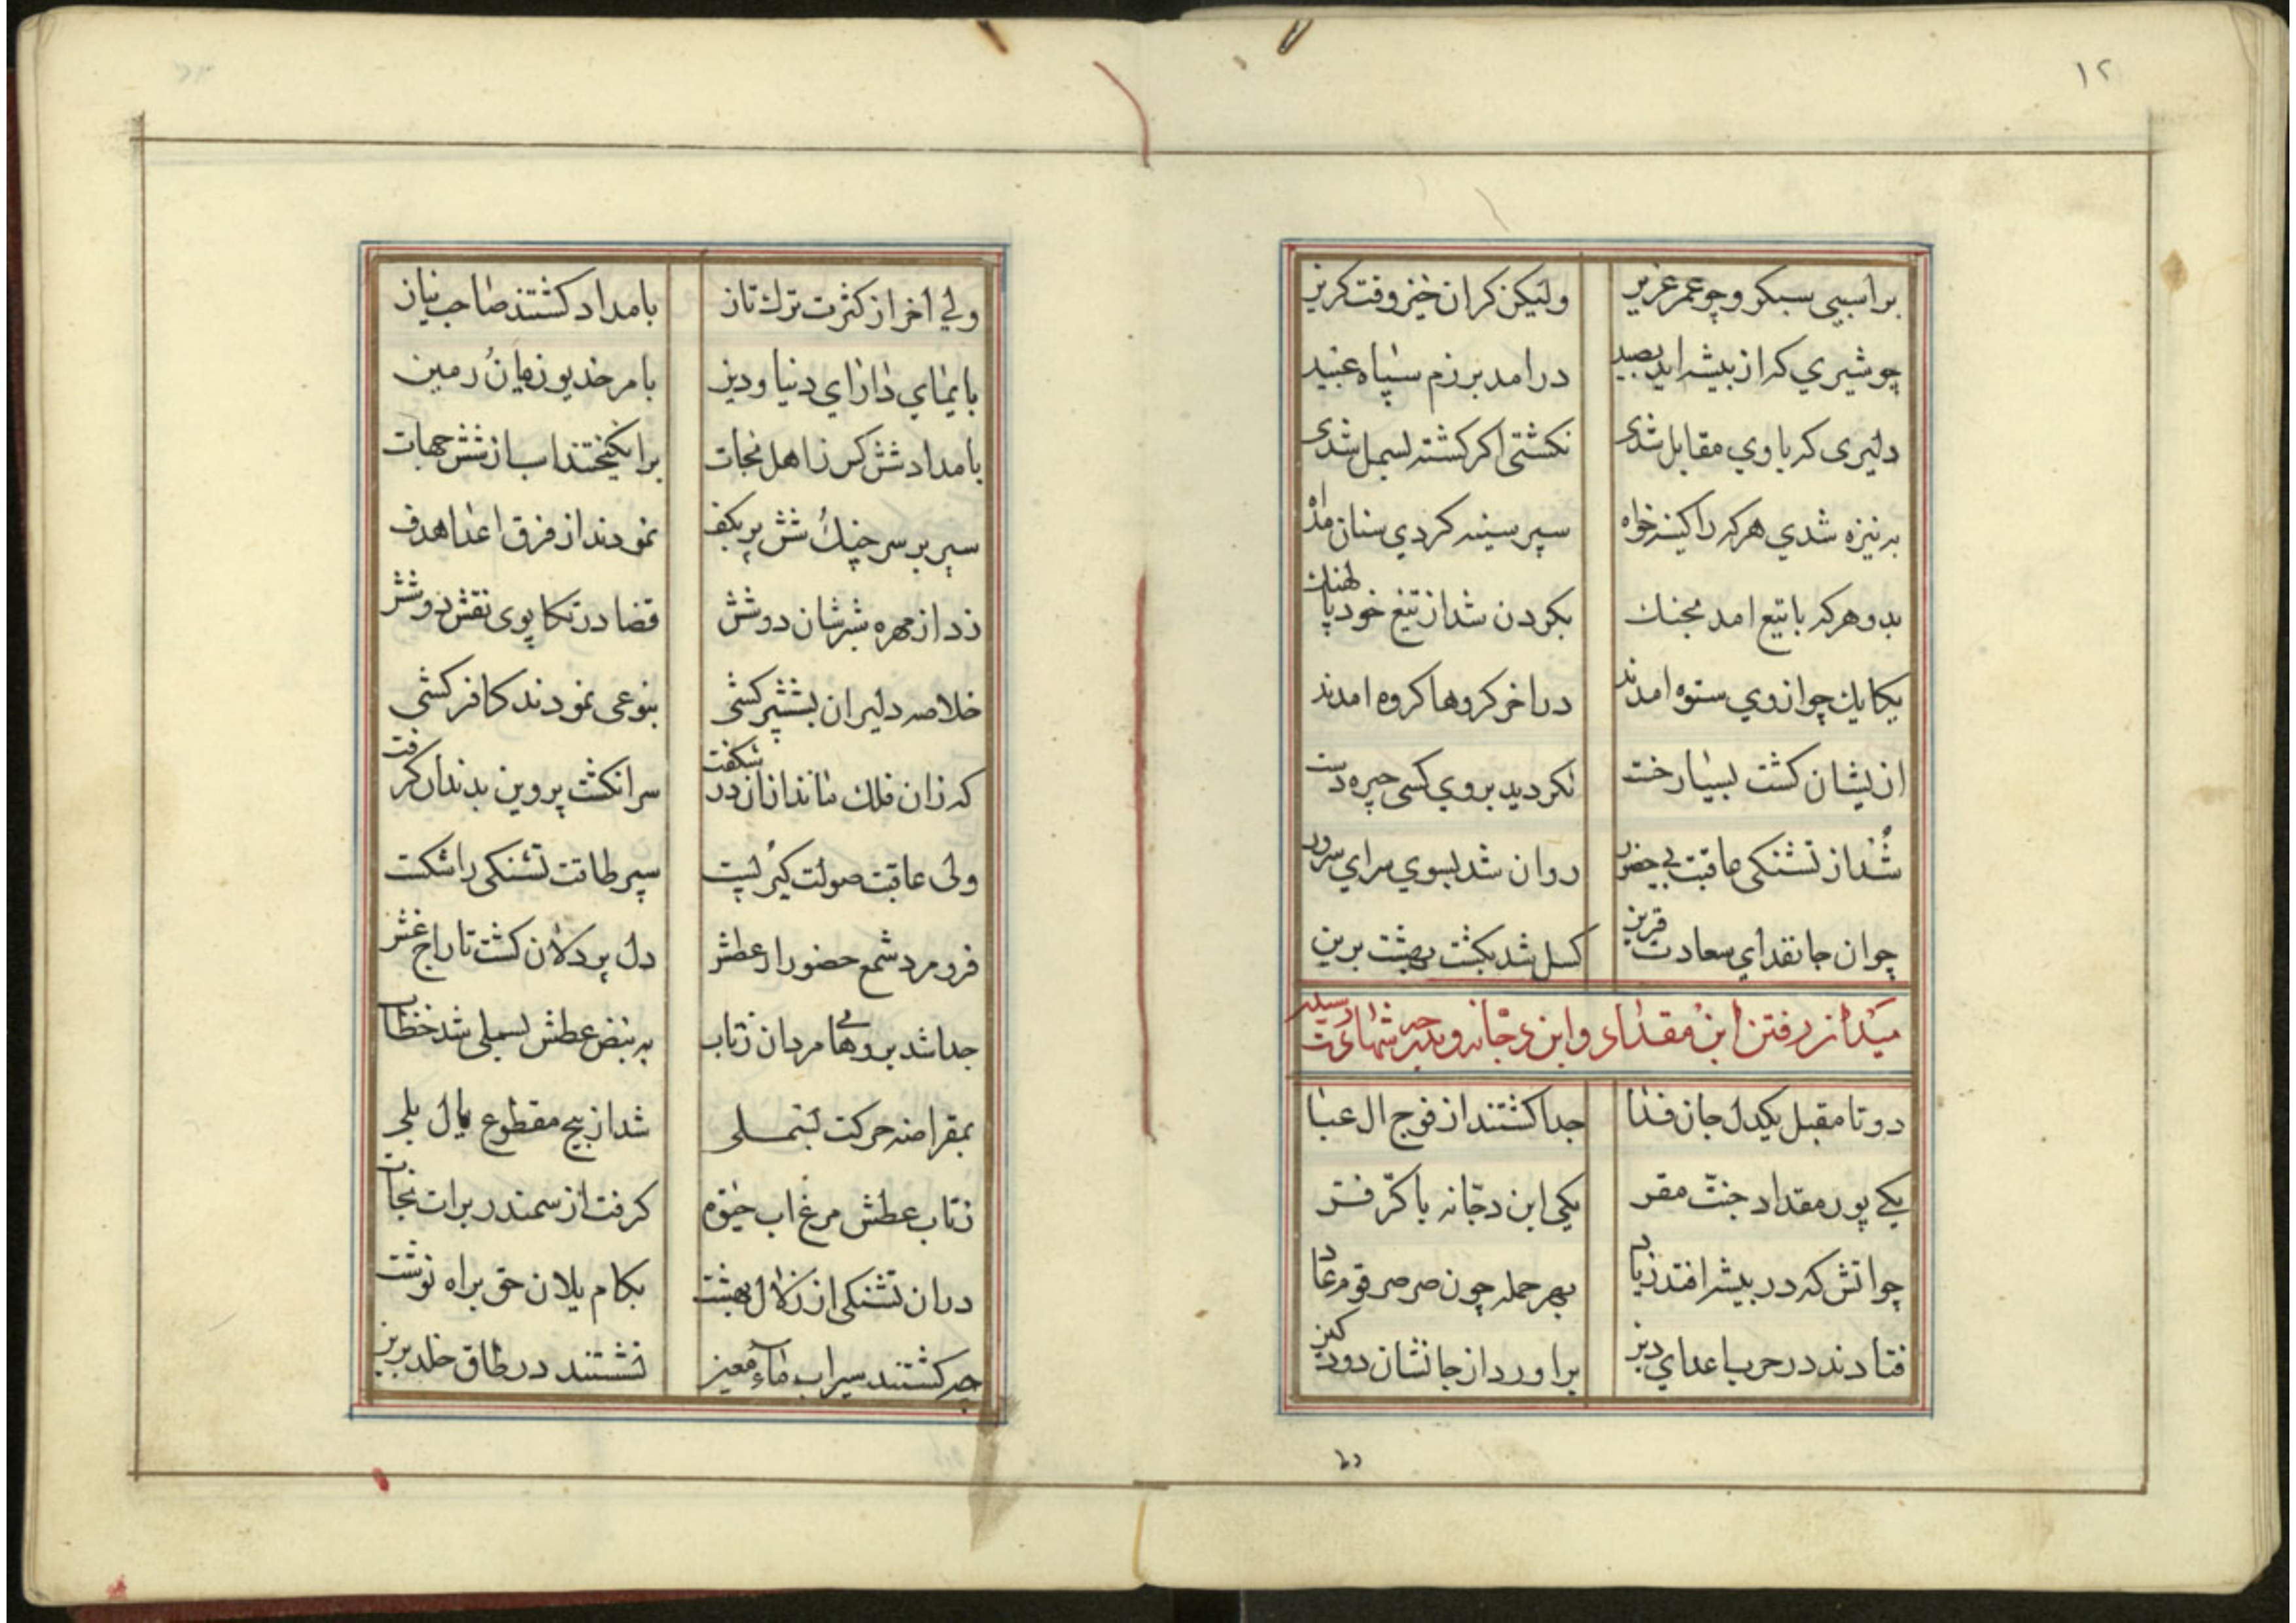 ١٢
براسبی سبکرو چو عمر عزیز ولیکن کران خیز وقت کریز
چو شیری که از بیشه اید بصید درامد برزم سپاه عبید
دلیری که با وی مقابل شدی نکشتی اکر کشته بسمل شدی
به نیزه شدی هرکه را کینه خواه سپر سینه کردی سنان
بدو هرکه با تیغ امد بجنك بکردن شد از تیغ خود
یکایك چو از وی ستوه امدند در اخر کروها کروه امدند
ازیشان کشت بسیار نکردید بروی کسی چیره دست
شد از تشنکی عاقبت بی حضور روان شد بسوی سرای سرور
جوان جانفدای سعادت قرین کسل شد بکشت بهشت برین
میدان رفتن ابن مقداد و ابن دجانه و بدرجه شهادت رسیدند
دو تا مقبل یکدل جان فدا جدا کشتند از فوج ال عبا
یکی پور مقداد جنت مقر یکی ابن دجانه با کر فر
چو اتش که در بیشه افتد زباد بهر حمله چون صرصر قوم عاد
فتادند در حرب اعدای دین براورد از جانشان دود کین
ولی اخر از کثرت ترك تاز بامداد کشتند صاحب نیاز
بایمای دارای دنیا و دین بامر خدیو زمان و زمین
بامداد شش کس ز اهل نجات برانکیختند اسب از شش جهات
سپر بر سر چنك شش پر بکف نمودند از فرق اعدا هدف
زد از مهره شرشان دوشش قضا در تکاپوی نقش دوشش
خلاصه دلیران بششپر کشی بنوعی نمودند کافر کشی
که زان فلك ماند ازان در شکفت سر انکشت پروین بدندان کرفت
ولی عاقبت صولت سپر طاقت تشنکی را شکست
فرو مرد شمع حضور از عطش دل پردلان کشت تاراج غش
جدا شد بروهای مردان زتاب به نبض عطش بسملی شد خطاب
بمقراضه حرکت بسملی شد از بیخ مقطوع بال یلی
زتاب عطش مرغ اب حیوة کرفت از سمندر برات نجات
دران تشنکی از زلال بهشت بکام یلان حق براه نوشت
چه کشتند سیراب ماء معین نشستند در طاق خلد برین